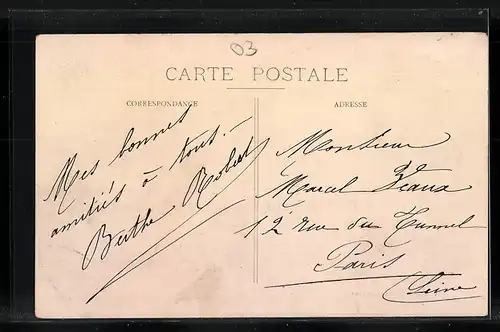 03
CARTE POSTALE
CORRESPONDANCE
Mes bonnes
amitiés à tous. —
Berthe Robert
ADRESSE
Monsieur
Marcel
12 rue du Tunnel
Paris
(Seine